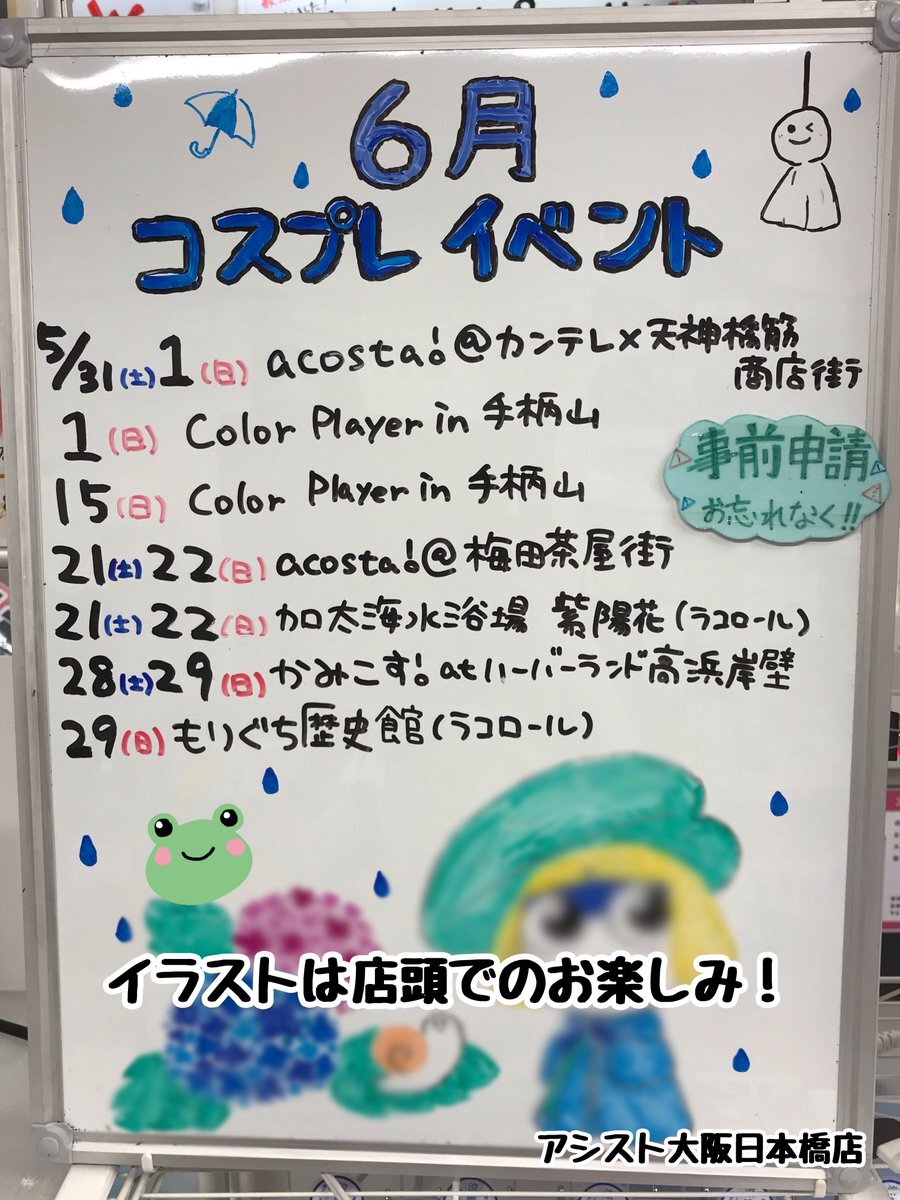 6月
コスプレ イベント
5/31(土)1(日) acosta!@カンテレ×天神橋筋
商店街
1(日) Color Player in 手柄山
15(日) Color Player in 手柄山
事前申請
お忘れなく!!
21(土)22(日) acosta!@梅田茶屋街
21(土)22(日) 加太海水浴場 紫陽花(ラコロール)
28(土)29(日) かみこす!atハーバーランド高浜岸壁
29(日) もりぐち歴史館(ラコロール)
イラストは店頭でのお楽しみ!
アシスト大阪日本橋店